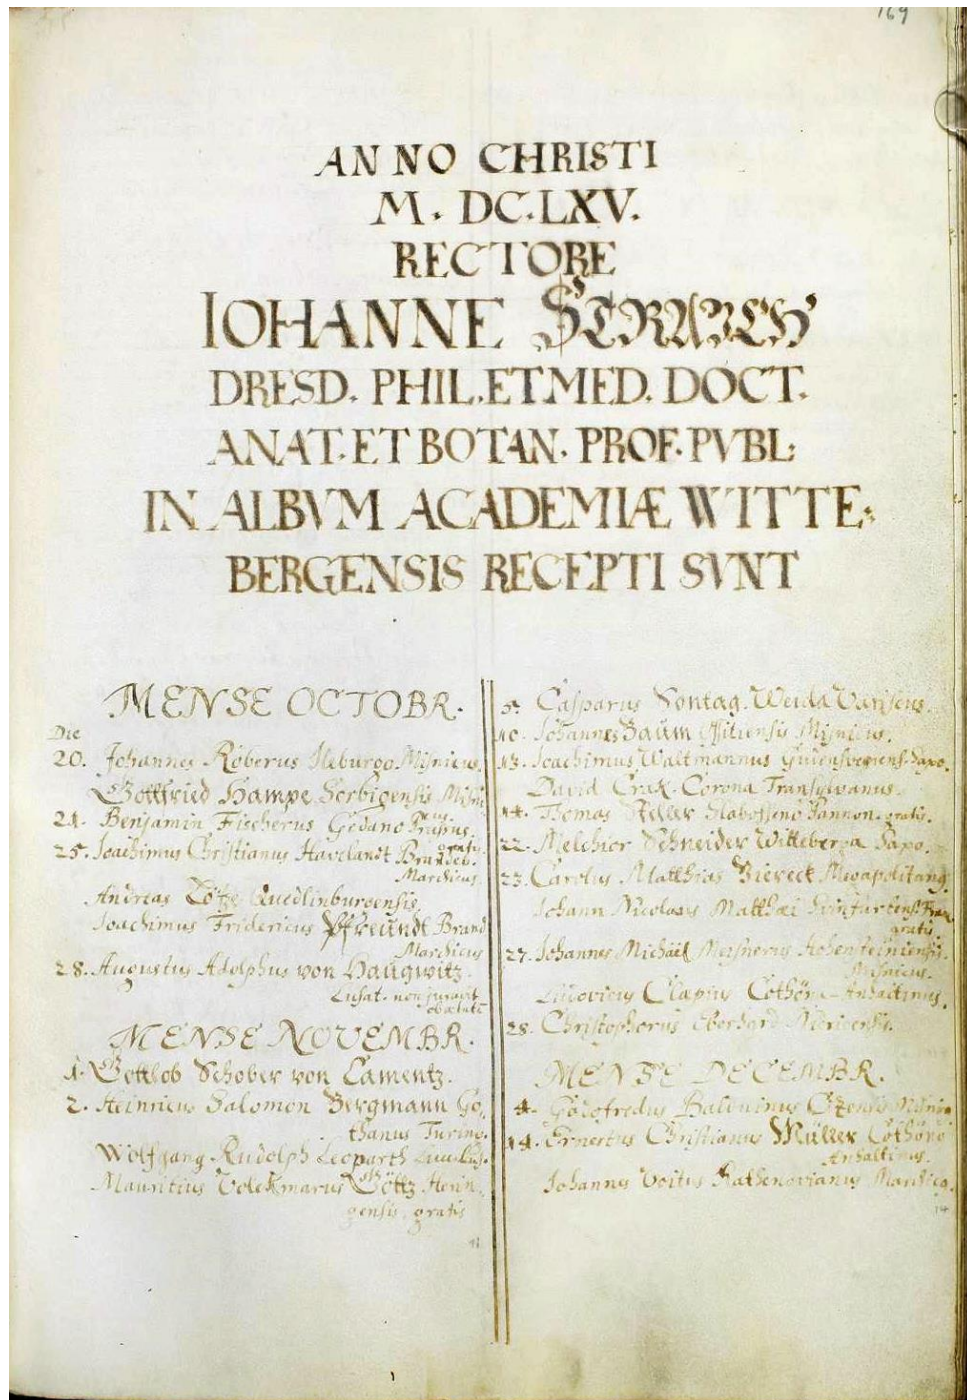 169
ANNO CHRISTI
M. DC.LXV.
RECTORE
IOHANNE STRAUCH
DRESD. PHIL. ET MED. DOCT.
ANAT. ET BOTAN. PROF. PVBL:
IN ALBVM ACADEMIÆ WITTE-
BERGENSIS RECEPTI SVNT
MENSE OCTOBR.
Die
20. Johannes Röberus Ileburgo Misnicus.
Gottfried Hampe Sorbigensis Misn
21. Benjamin Fischerus Gedano
gratis
25. Joachimus Christianus Havelandt Brandeb.
Marchicus
Andreas Quedlinburgensis
Joachimus Fridericus Pfreundt Brand
Marchicus
28. Augustus Adolphus von Haugwitz
Lusat. non juravit
MENSE NOVEMBR.
1. Gottlob Schober von Camentz.
2. Heinricus Salomon Bergmann Go-
thanus Turing.
Wolfgang Rudolph Leoparth
Mauritius Volckmarus Götz
gensis. gratis
Casparus Sontag. Weida Variscus.
10. Johannes Baum Misnicus.
13. Joachimus Waltmannus Saxo.
David Crak. Corona Transylvanus.
14. Thomas Pannon. gratis.
22. Melchior Schneider Witteberga Saxo.
23. Carolus Matthias Viereck Megapolitang
Johann Nicolaus Matthæi
gratis
27. Johannes Michael Meisnerus Hohensteiniensis
Misnicus.
Ludovicus Clæpius Cöthön- Anhaltinus.
28. Christophorus Eberhard
MENSE DECEMBR.
4. Godofredus Balduinus
14. Ernestus Christianus Müller Cothönô
Anhaltinus.
Johannes Voitus Rathenovianus